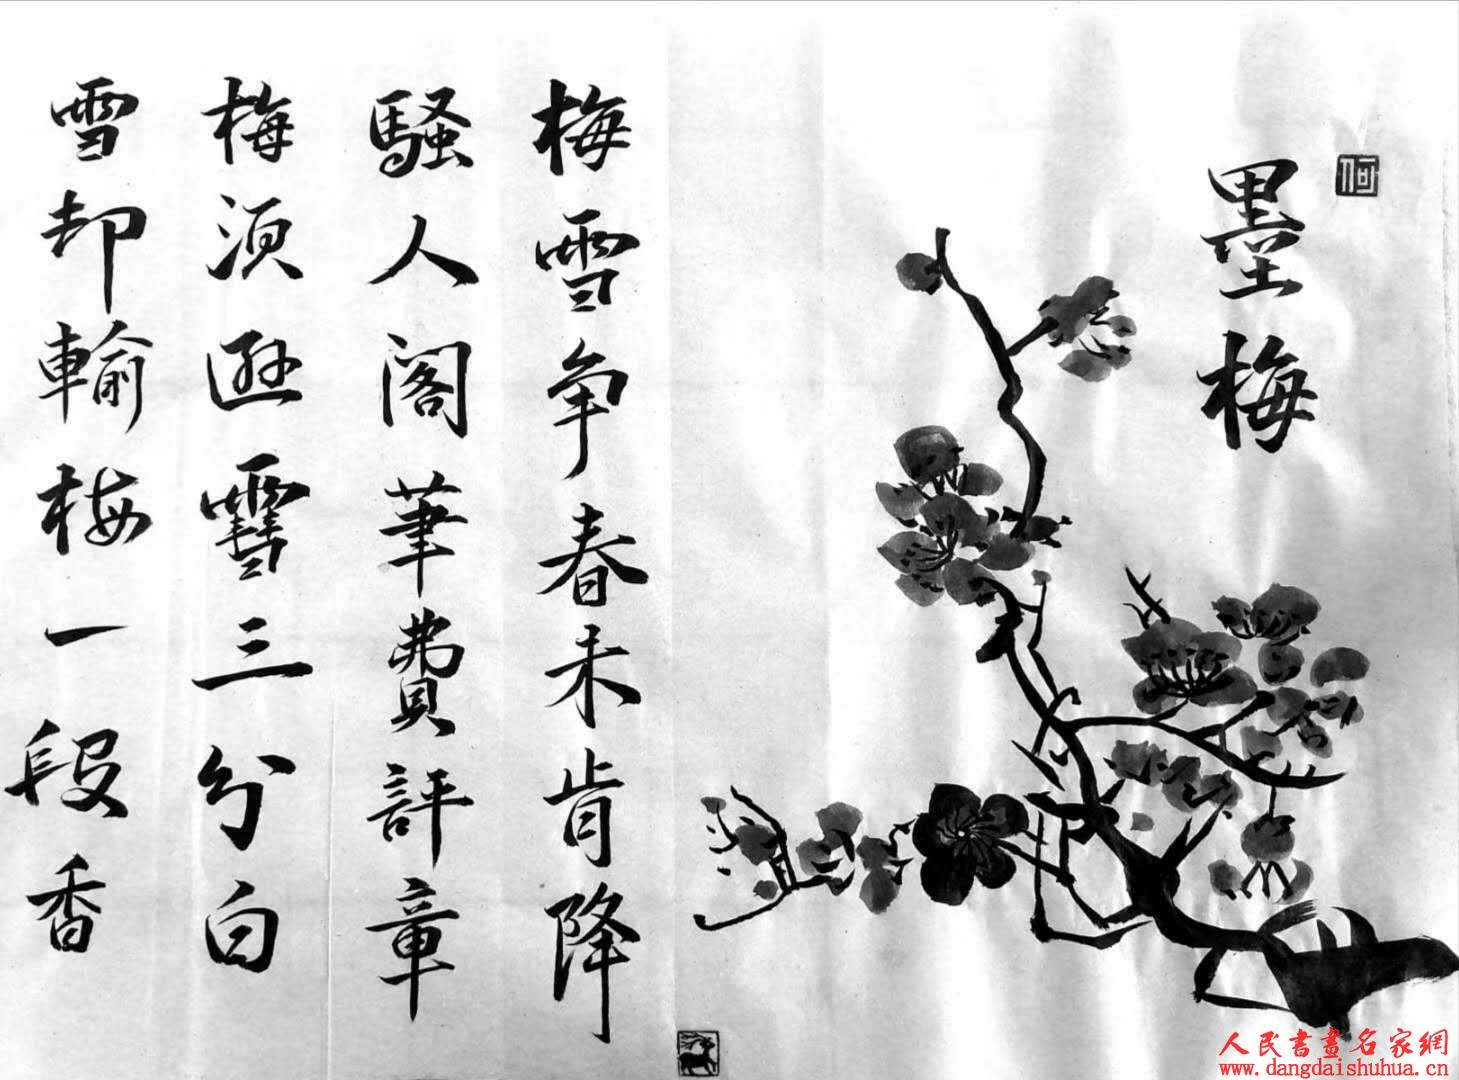 墨梅
梅雪争春未肯降
骚人阁筆費評章
梅須遜雪三分白
雪却輸梅一段香
人民書畫名家網
www.dangdaishuhua.cn